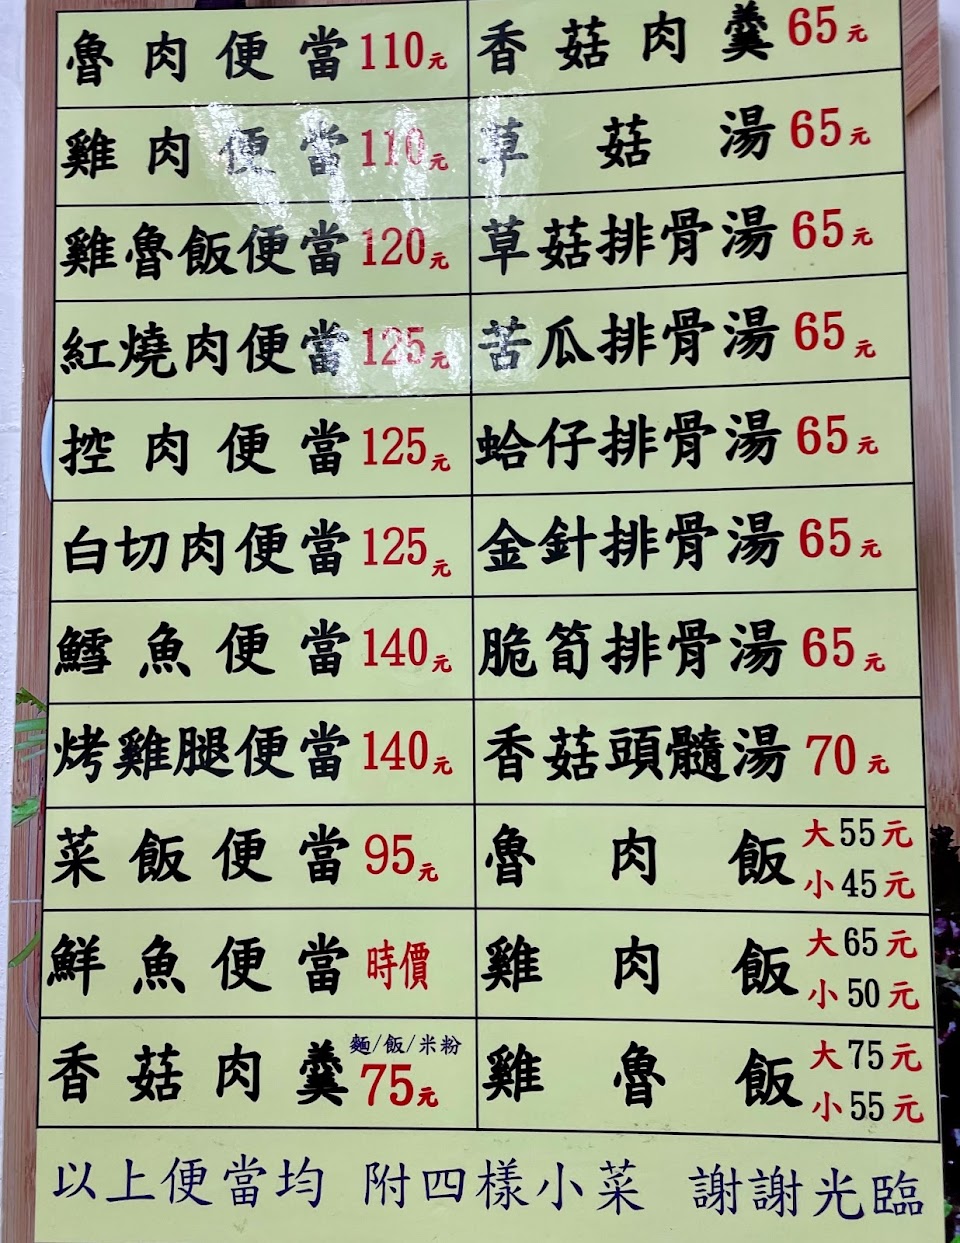 魯肉便當110元
雞肉便當110元
雞魯飯便當120元
紅燒肉便當125元
控肉便當125元
白切肉便當125元
鱈魚便當140元
烤雞腿便當140元
菜飯便當95元
鮮魚便當時價
香菇肉羹麵/飯/米粉75元
香菇肉羹65元
草菇湯65元
草菇排骨湯65元
苦瓜排骨湯65元
蛤仔排骨湯65元
金針排骨湯65元
脆筍排骨湯65元
香菇頭髓湯70元
魯肉飯大55元
小45元
雞肉飯大65元
小50元
雞魯飯大75元
小55元
以上便當均 附四樣小菜 謝謝光臨